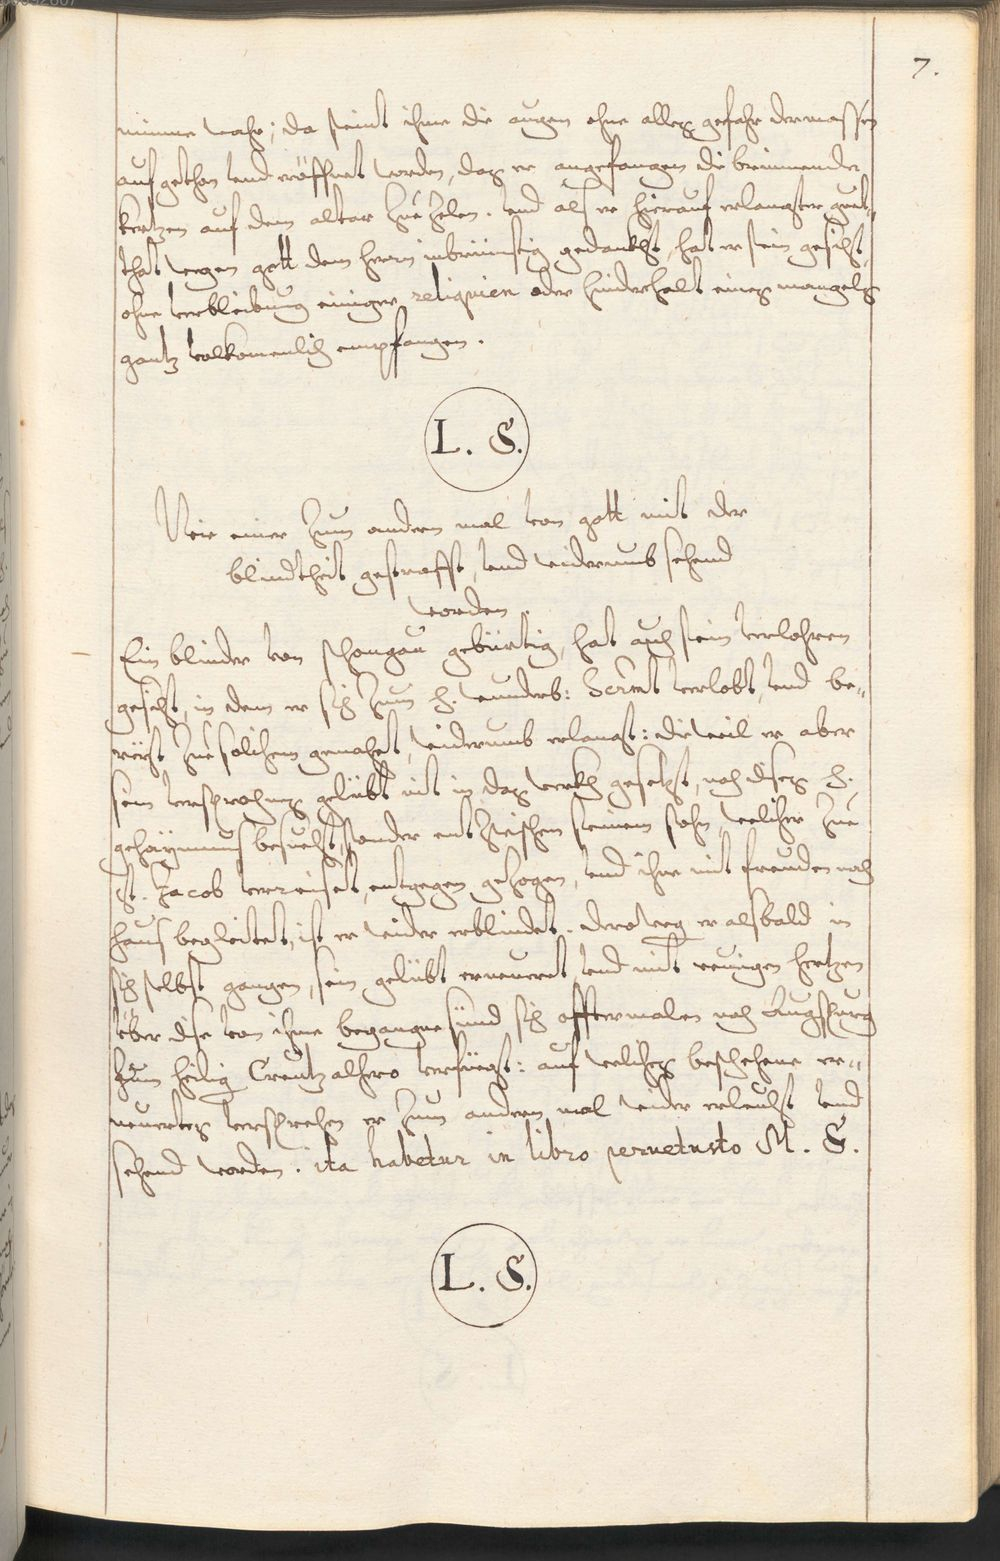 7.
nimme wahr; da seint ihme die augen ohne alles gefahr dermassen
aufgethon und eröffnet worden, das er angefangen die brinnende
kertzen auf dem altar zue zelen. und als er hierauf erlangter guet-
that wegen gott dem herrn inbrünstig gedankht, hat er sein gesicht,
ohne verbleibung einiger reliquien oder hinderhalt eines mangels
gantz volkomenlich empfangen.
L. S.
Wie einer zum andern mal von gott mit der
blindtheit gestrafft, und widerumb sehend
worden.
Ein blinder von schongau gebürtig, hat auch sein verlohren
gesicht, in dem er sich zum h. wunderb: Scrmt verlobt, und be-
reist zue solichem gemahst, widerumb erlangt: dieweil er aber
sein versprochnes gelübt nit in das werkh gesetzt, noch dises h.
gehaÿmnus besucht, sonder entzwischen seinem sohn, welicher zue
St. Jacob verreiset, entgegen gezogen, und ihne mit freuden nach
haus begleitet, ist er wider erblindet. deroweg er alsbald in
sich selbst gangen, sein gelübt erneueret, und mit reuigen hertzen
über dise von ihme begangne sünd sich offtermalen nach Augspurg
zum heilig Creutz alhero verfüegt: auf welches beschehene er-
neuertes versprechen er zum andern mal wider erleucht und
sehend worden. ita habetur in libro peruetusto M. S.
L. S.